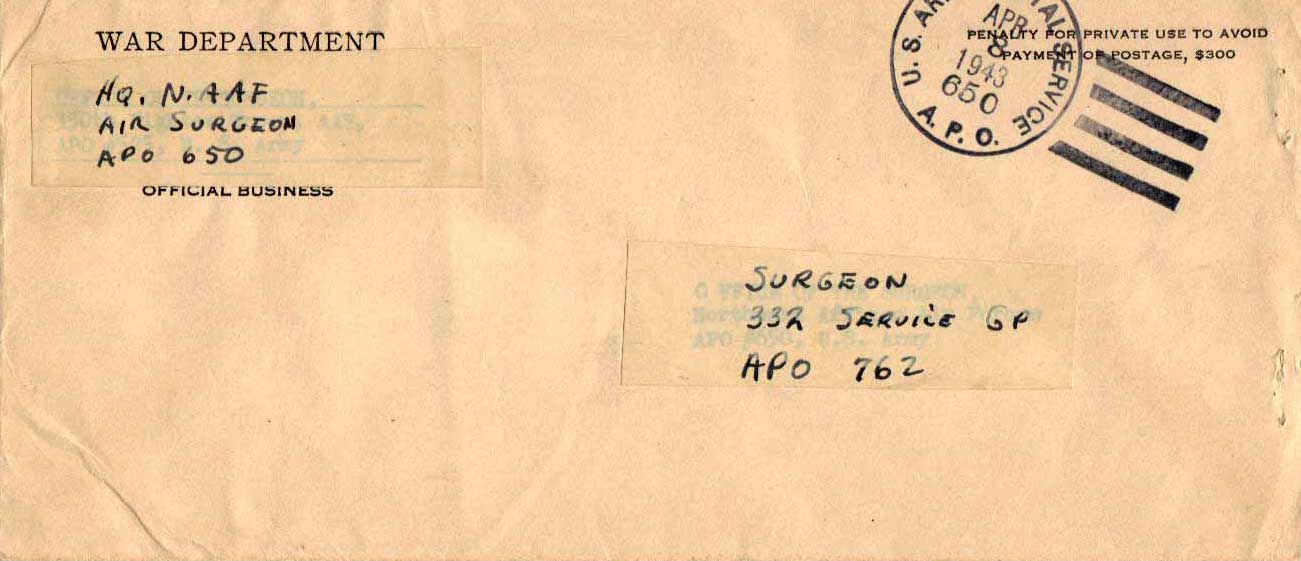 WAR DEPARTMENT
HQ. N.AAF
AIR SURGEON
APO 650
OFFICIAL BUSINESS
U.S. SERVICE
APR
8
1943
650
A.P.O.
PENALTY FOR PRIVATE USE TO AVOID
PAYMENT OF POSTAGE, $300
SURGEON
332 SERVICE GP
APO 762